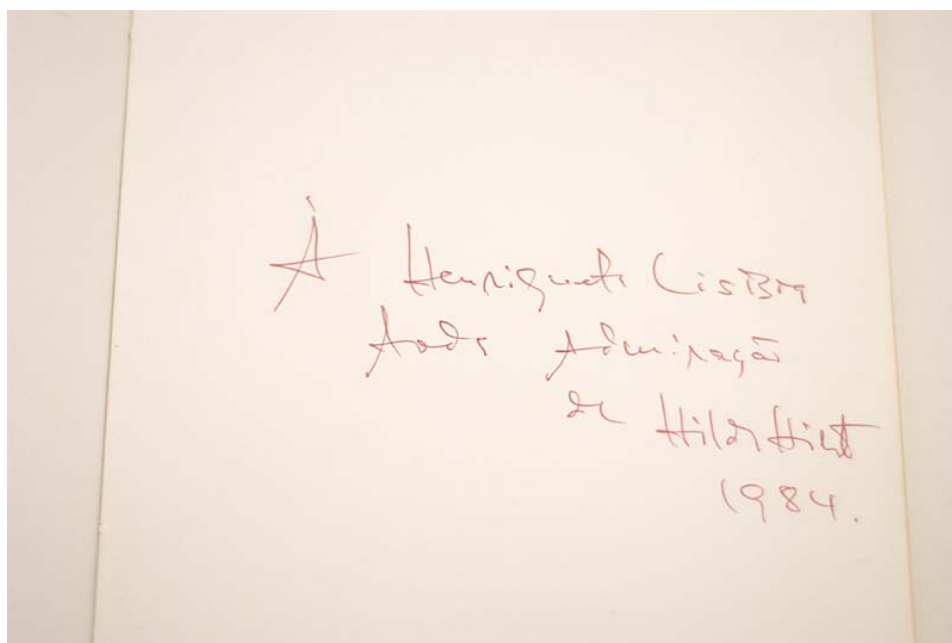 À Henriqueta Lisboa
toda admiração
de Hilda Hilst
1984.